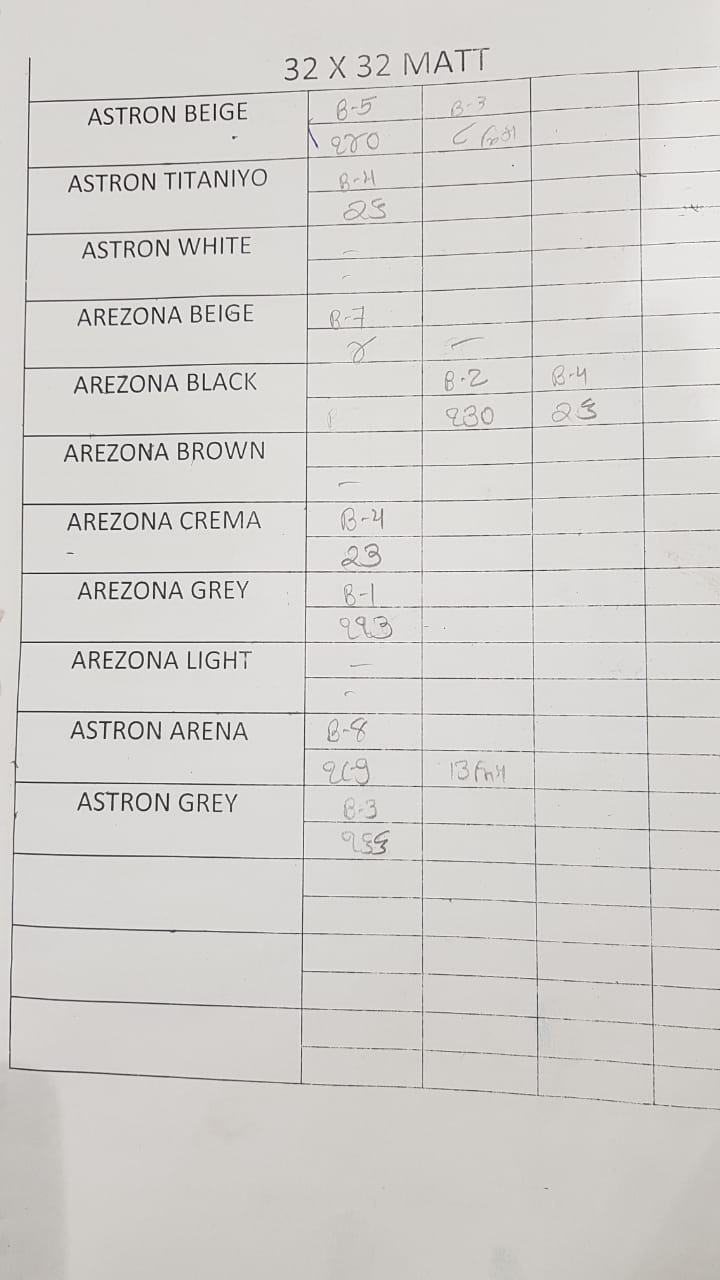 32 X 32 MATT
ASTRON BEIGE B-5 B-3
૧૪૦
ASTRON TITANIYO B-4
ASTRON WHITE - -
AREZONA BEIGE B-7
૪ -
AREZONA BLACK B-2 B-4
૧૩૦
AREZONA BROWN
-
AREZONA CREMA B-4
૨૩
AREZONA GREY B-1
૧૧૩
AREZONA LIGHT - -
ASTRON ARENA B-8
ASTRON GREY B-3